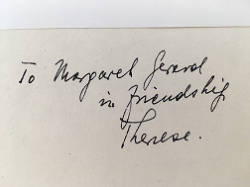 To Margaret Gerard
in friendship,
Therese.